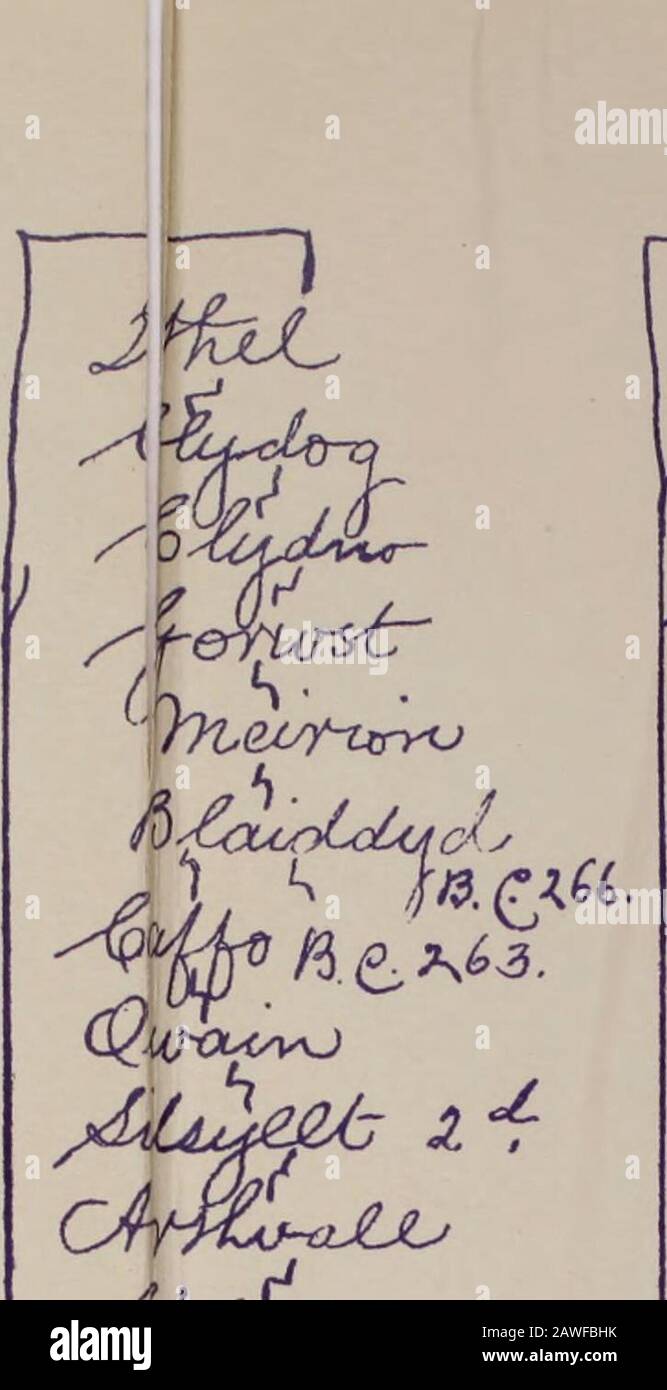 Ithel
Clydog
Clydno
Gorwst
Meirion
Blaiddyd
B.C. 266.
Caffo B.C. 263.
Owain
Silsyllt 2d.
Arthvall
alamy
Image ID: 2AWFBHK
www.alamy.com